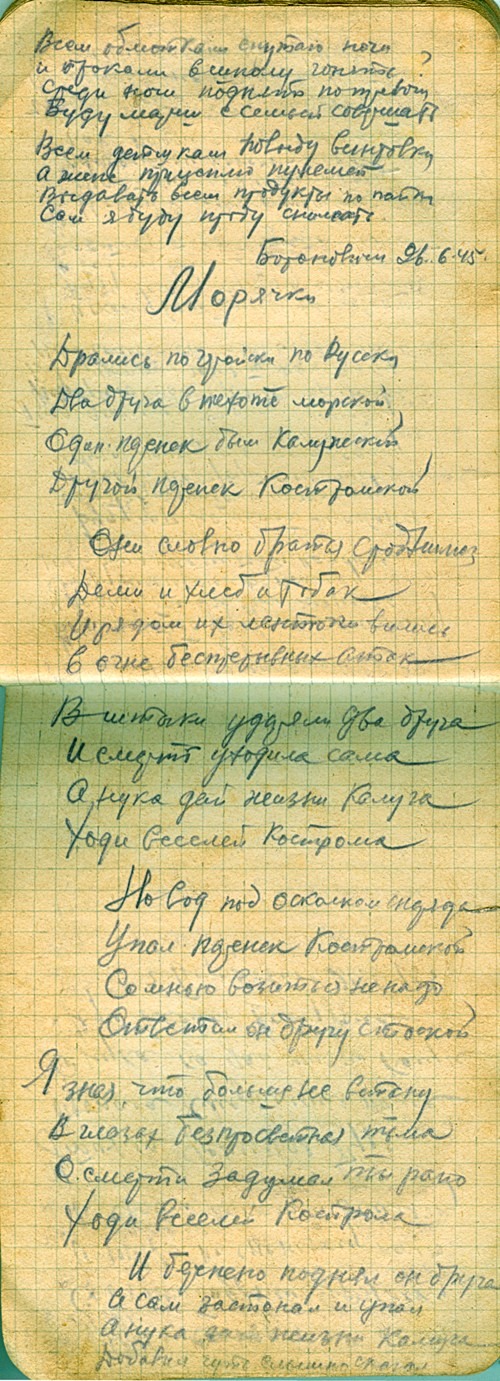 Всем обмоткам спутаю ночи
и строками в школу гонять
Среди ночи поднять по тревоги
Буду марш с семьей совершать
Всем детукам повыду винтовки
А жене прицеплю пулемет
Выдавать всем продукты по пайки
Сам я буду пробу снимать.
Борановичи 26.6.45.
Морячки
Дрались по гройски по Русски
Два друга в пехоте морской
Один пденек был Калужский
Другой пденек Костромской
Они словно братья сроднились
Деми и хлеб и табак
И рядом их ленточки вились
В огне беспрерывных атак
В штыки ударяли два друга
И смерть уходила сама
А нука дай жизни Калуга
Ходи веселей Кострома
Но вод под осколком снаряда
Упал пденек Костромской
Со мною возиться не надо
Ответил он другу с тоской
Я знаю, что больше не встану
В глазах безпросветная тьма
О смерти задумал ты рано
Ходи веселей Кострома
И бережно поднял он друга
А сам застонал и упал
А нука дай жизни Калуга
Добавил чуть слышно сказал